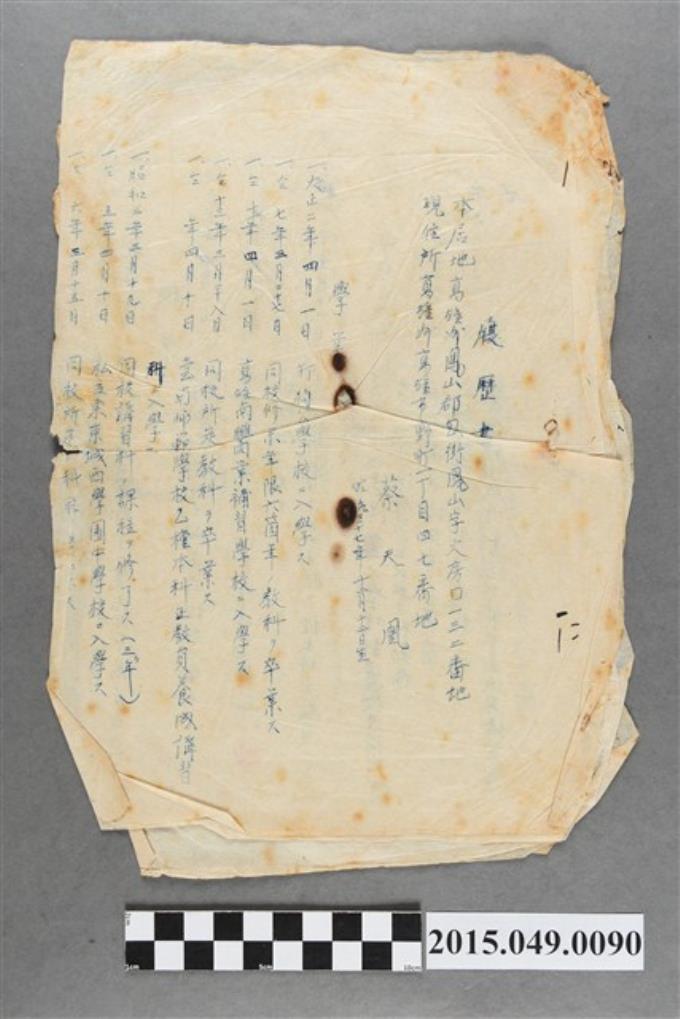 履歷書
本居地高雄州鳳山郡鳳山街鳳山字火房口一三二番地
現住所高雄州高雄市野町一丁目四七番地
蔡天鳳
十七年十月十三日生
學
一、大正二年四月一日 公學校ニ入學ス
一、仝七年三月廿七日 同校修業年限六箇年ノ教科ヲ卒業ス
一、仝 年四月一日 高雄商業補習學校ニ入學ス
一、仝十二年三月廿八日 同校所定教科ヲ卒業ス
一、仝 年四月十日 臺南師範學校乙種本科正教員養成講習
科ニ入學ス
一、昭和 年三月十九日 同校講習科ノ課程ヲ修了ス(三年)
一、仝三年四月十日 私立東京城西學園中學校ニ入學ス
一、仝六年三月十五日 同校所定 科
2015.049.0090